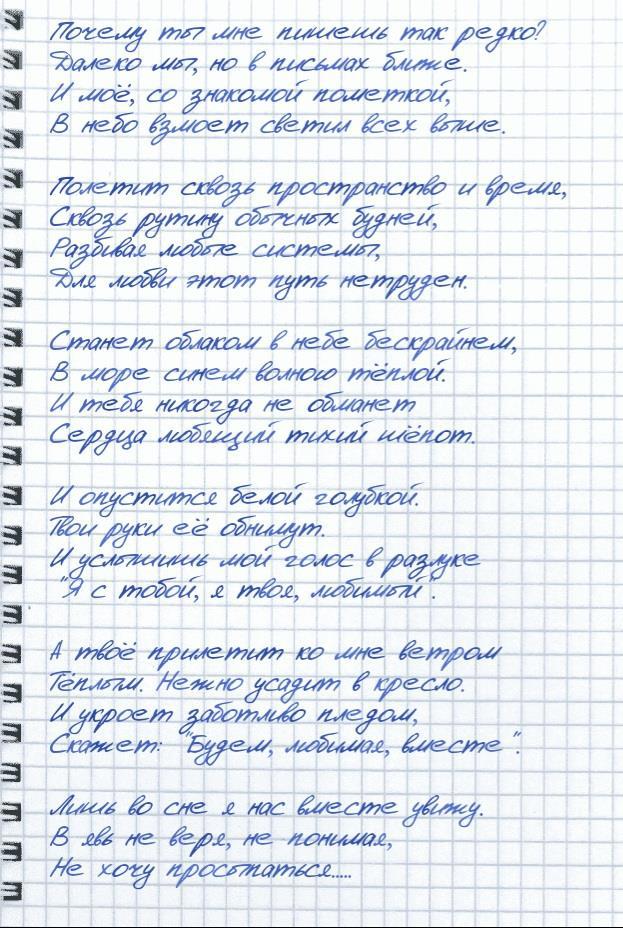 Почему ты мне пишешь так редко?
Далеко мы, но в письмах ближе.
И моё, со знакомой пометкой,
В небо взмоет светил всех выше.
Полетит сквозь пространство и время,
Сквозь рутину обычных будней,
Разбивая любые системы,
Для любви этот путь нетруден.
Станет облаком в небе бескрайнем,
В море синем волною тёплой.
И тебя никогда не обманет
Сердца любящий тихий шёпот.
И опустится белой голубкой.
Твои руки её обнимут.
И услышишь мой голос в разлуке
"Я с тобой, я твоя, любимый".
А твоё прилетит ко мне ветром
Тёплым. Нежно усадит в кресло.
И укроет заботливо пледом,
Скажет: "Будем, любимая, вместе".
Лишь во сне я нас вместе увижу.
В явь не веря, не понимая,
Не хочу просыпаться.....